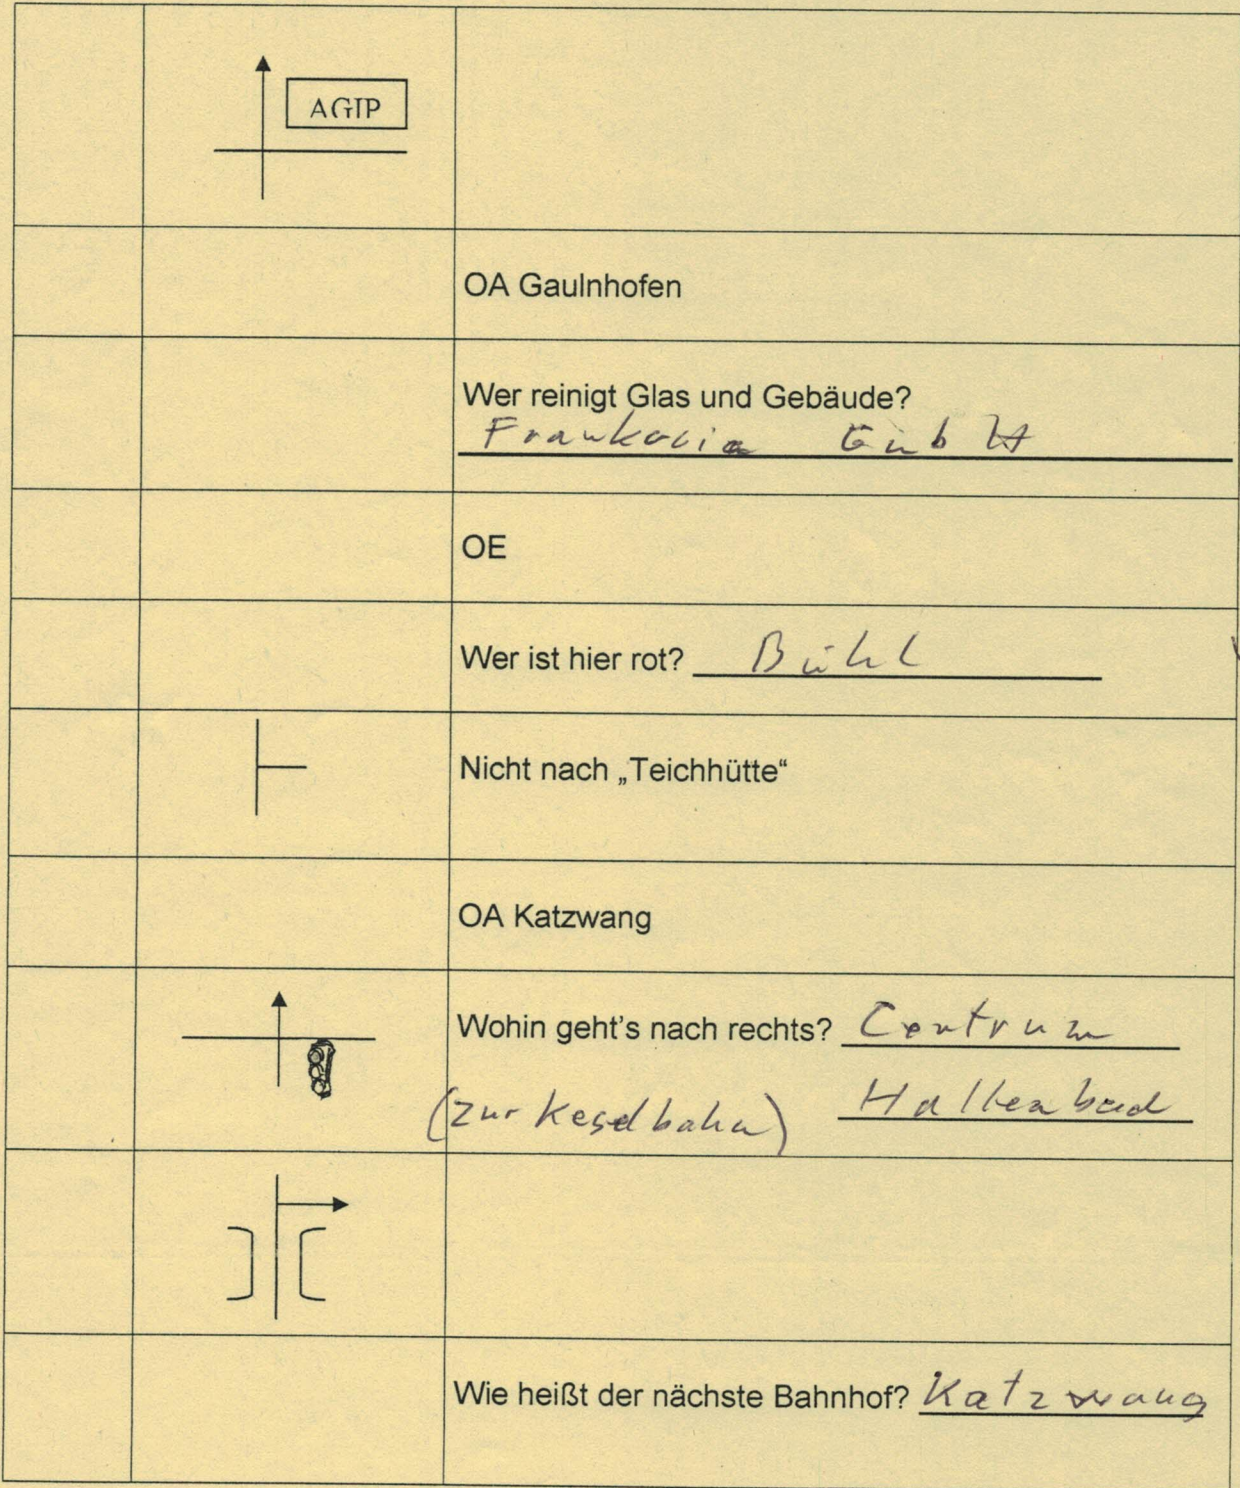 AGIP
OA Gaulnhofen
Wer reinigt Glas und Gebäude?
Frankonia GmbH
OE
Wer ist hier rot? Bühl
Nicht nach „Teichhütte“
OA Katzwang
Wohin geht's nach rechts? Centrum
(zur Kegelbahn) Hallenbad
Wie heißt der nächste Bahnhof? Katzwang